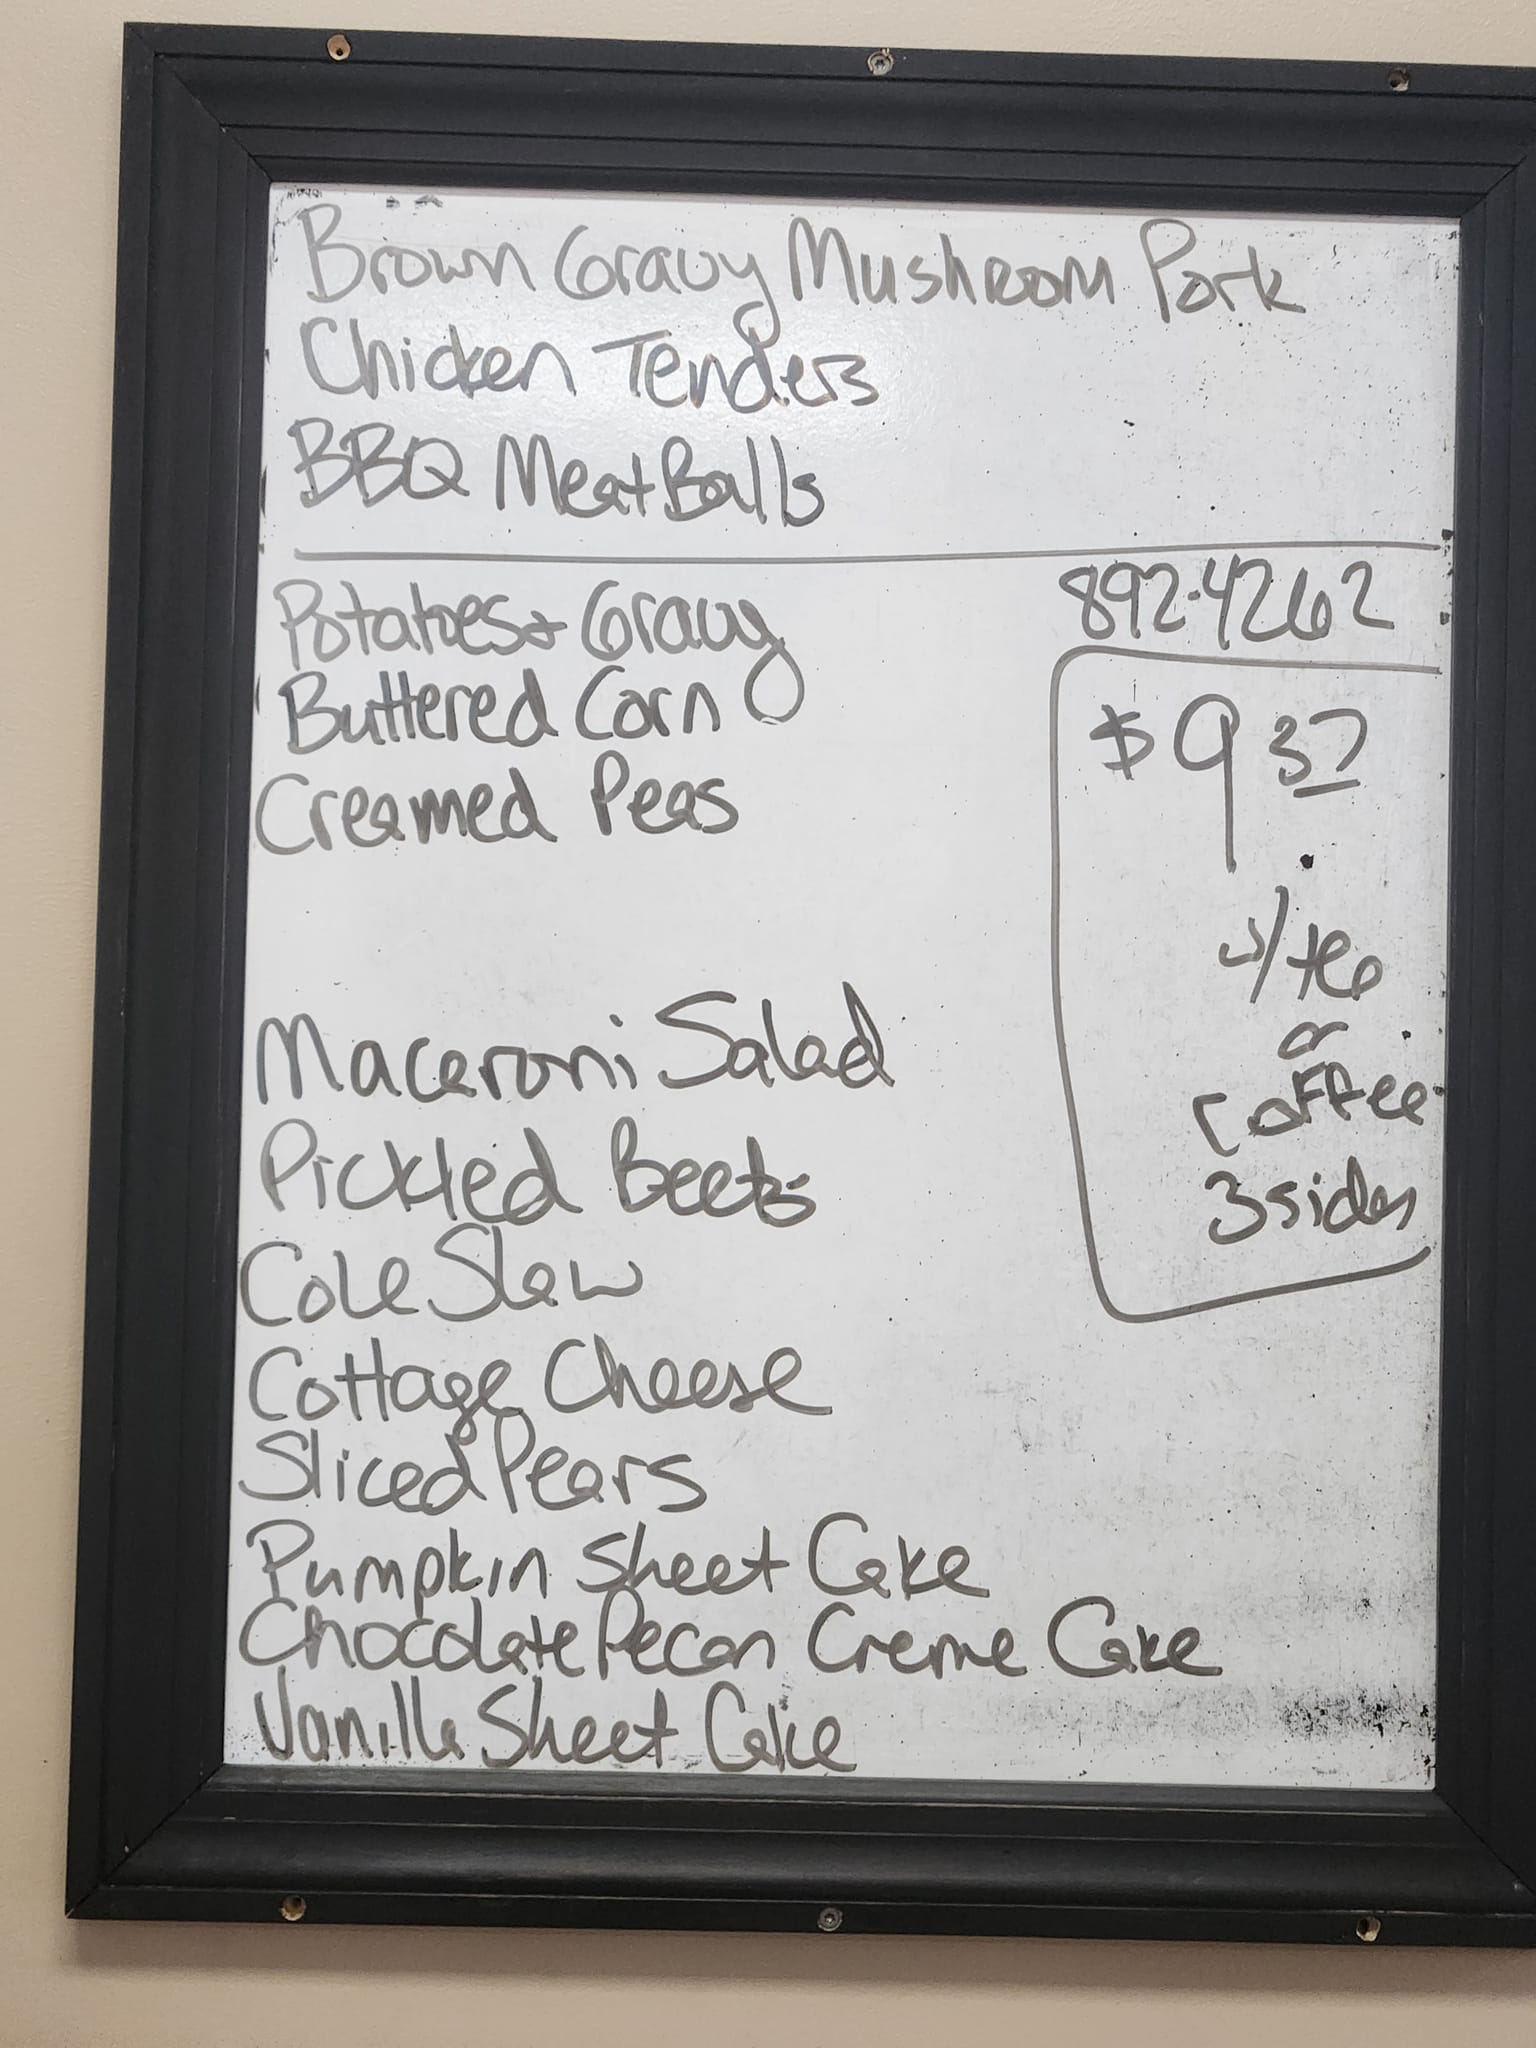 Brown Gravy Mushroom Pork
Chicken Tenders
BBQ MeatBalls
892-4262
Potatoes & Gravy
Buttered Corn
Creamed Peas
$9 37
w/tea
or
coffee
3 sides
Macaroni Salad
Pickled Beets
Cole Slaw
Cottage Cheese
Sliced Pears
Pumpkin Sheet Cake
Chocolate Pecan Creme Cake
Vanilla Sheet Cake